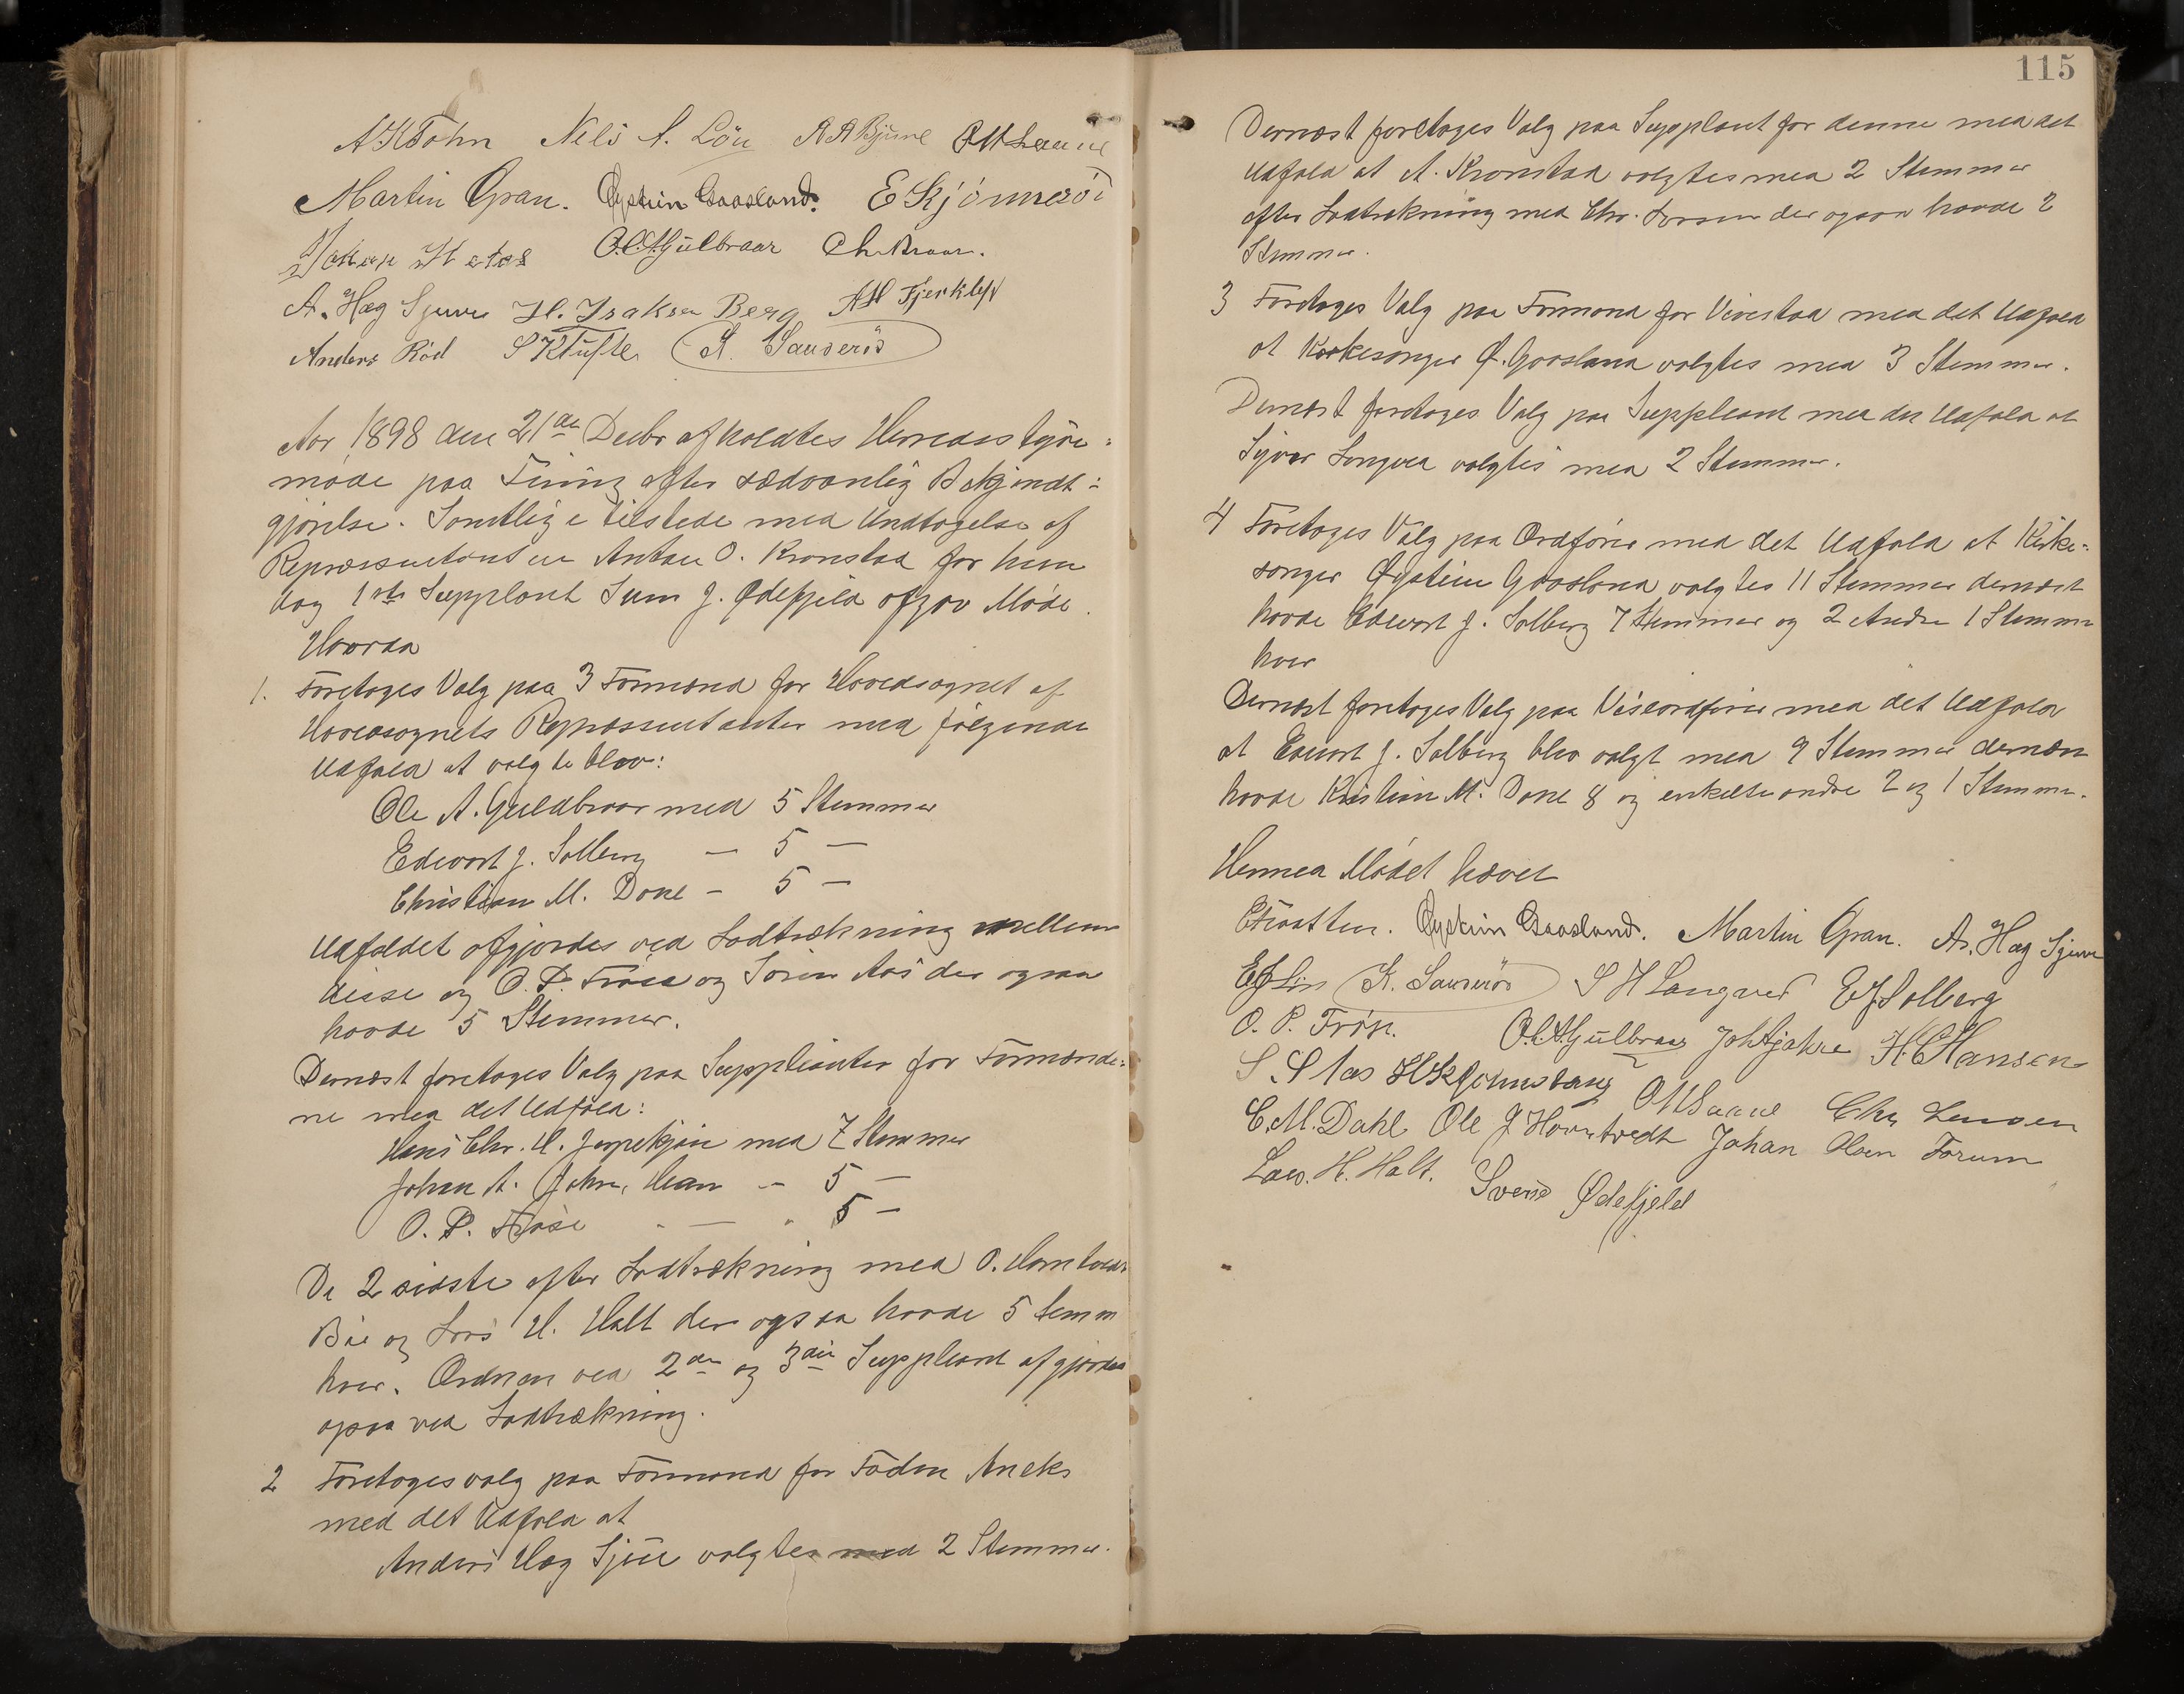 A.K. Tohn Nils A. Löu A A Bjune O M Saane
Martin Gran. Øystein Gaasland. E Skjønnerö
O.A. Gulbraar Chr.
A. Hag Sjuve H. Isaksen Berg AH Fjerkleps
Anders Röd S K Tufte K. Sauserös
Aar 1898 den 21de Decbr afholdtes Herredsstyre-
møde paa Turing efter sædvanlig Bekjendt-
gjørelse. Samtlige tilstede med Undtagelse af
Repræsentanten Anton O. Kronstad for hvem
dog 1ste Suppleant Sven J. Ødefjeld afgav Møde.
Hvorpaa
1. Foretoges Valg paa 3 Formænd for Hovedsognet af
Hovedsognets Repræsentanter med følgende
Udfald at valgte blev:
Ole A. Guldbraar med 5 Stemmer
Edvart J. Solberg — 5 —
Christian M. Dahl — 5 —
Udfaldet afgjordes ved Lodtrækning mellem
disse og O. P. Trøse og Søren Aas der ogsaa
havde 5 Stemmer.
Dernæst foretoges Valg paa Suppleanter for Formænde-
ne med det Udfald:
Hans Chr. H. med 7 Stemmer
Johan A. — 5 —
O. P. Trøse — 5 —
De 2 sidste efter Lodtrækning med O. Horntvedt
Bie og Lars H. Holt der ogsaa havde 5 Stemm
hver. Ordnen ved 2den og 3die Suppleant afgjordes
ogsaa ved Lodtrækning.
2 Foretoges valg paa Formand for Fødrn Aneks
med det Udfald at
Anders Hag Sjue valgtes med 2 Stemmer.
115
Dernæst foretoges Valg paa Suppleant for denne med det
Udfald at A. Kronstad valgtes med 2 Stemmer
efter Lodtrækning med Chr. Jensen der ogsaa havde 2
Stemmer.
3 Foretoges Valg paa Formand for Vivestad med det Udfald
at Kirkesanger Ø. Gaasland valgtes med 3 Stemmer.
Dernæst foretoges Valg paa Suppleant med det Udfald at
Syver Langved valgtes med 2 Stemmer.
4 Foretoges Valg paa Ordfører med det Udfald at Kirke-
sanger Øystein Gaasland valgtes 11 Stemmer dernæst
havde Edvart J. Solberg 7 Stemmer og 2 Andre 1 Stemme
hver
Dernæst foretoges Valg paa Viseordfører med det Udfald
at Edvart J. Solberg blev valgt med 9 Stemmer dernæst
havde Kristian M. Dahl 8 og enkelte andre 2 og 1 Stemme.
Hermed Mødet hævet
Øystein Gaasland. Martin Gran. A. Hag Sjuve
E J Lin K. Sauserös S H Langved E J Solberg
O. P. Trøse. O.A. Gulbraar Joh Fjahre H. C Hansen
S. S Aas O M Saane Chr Jensen
C. M. Dahl Ole J Horntvedt Johan Olsen Forum
Lars. H. Holt. Svend Ødefjeld